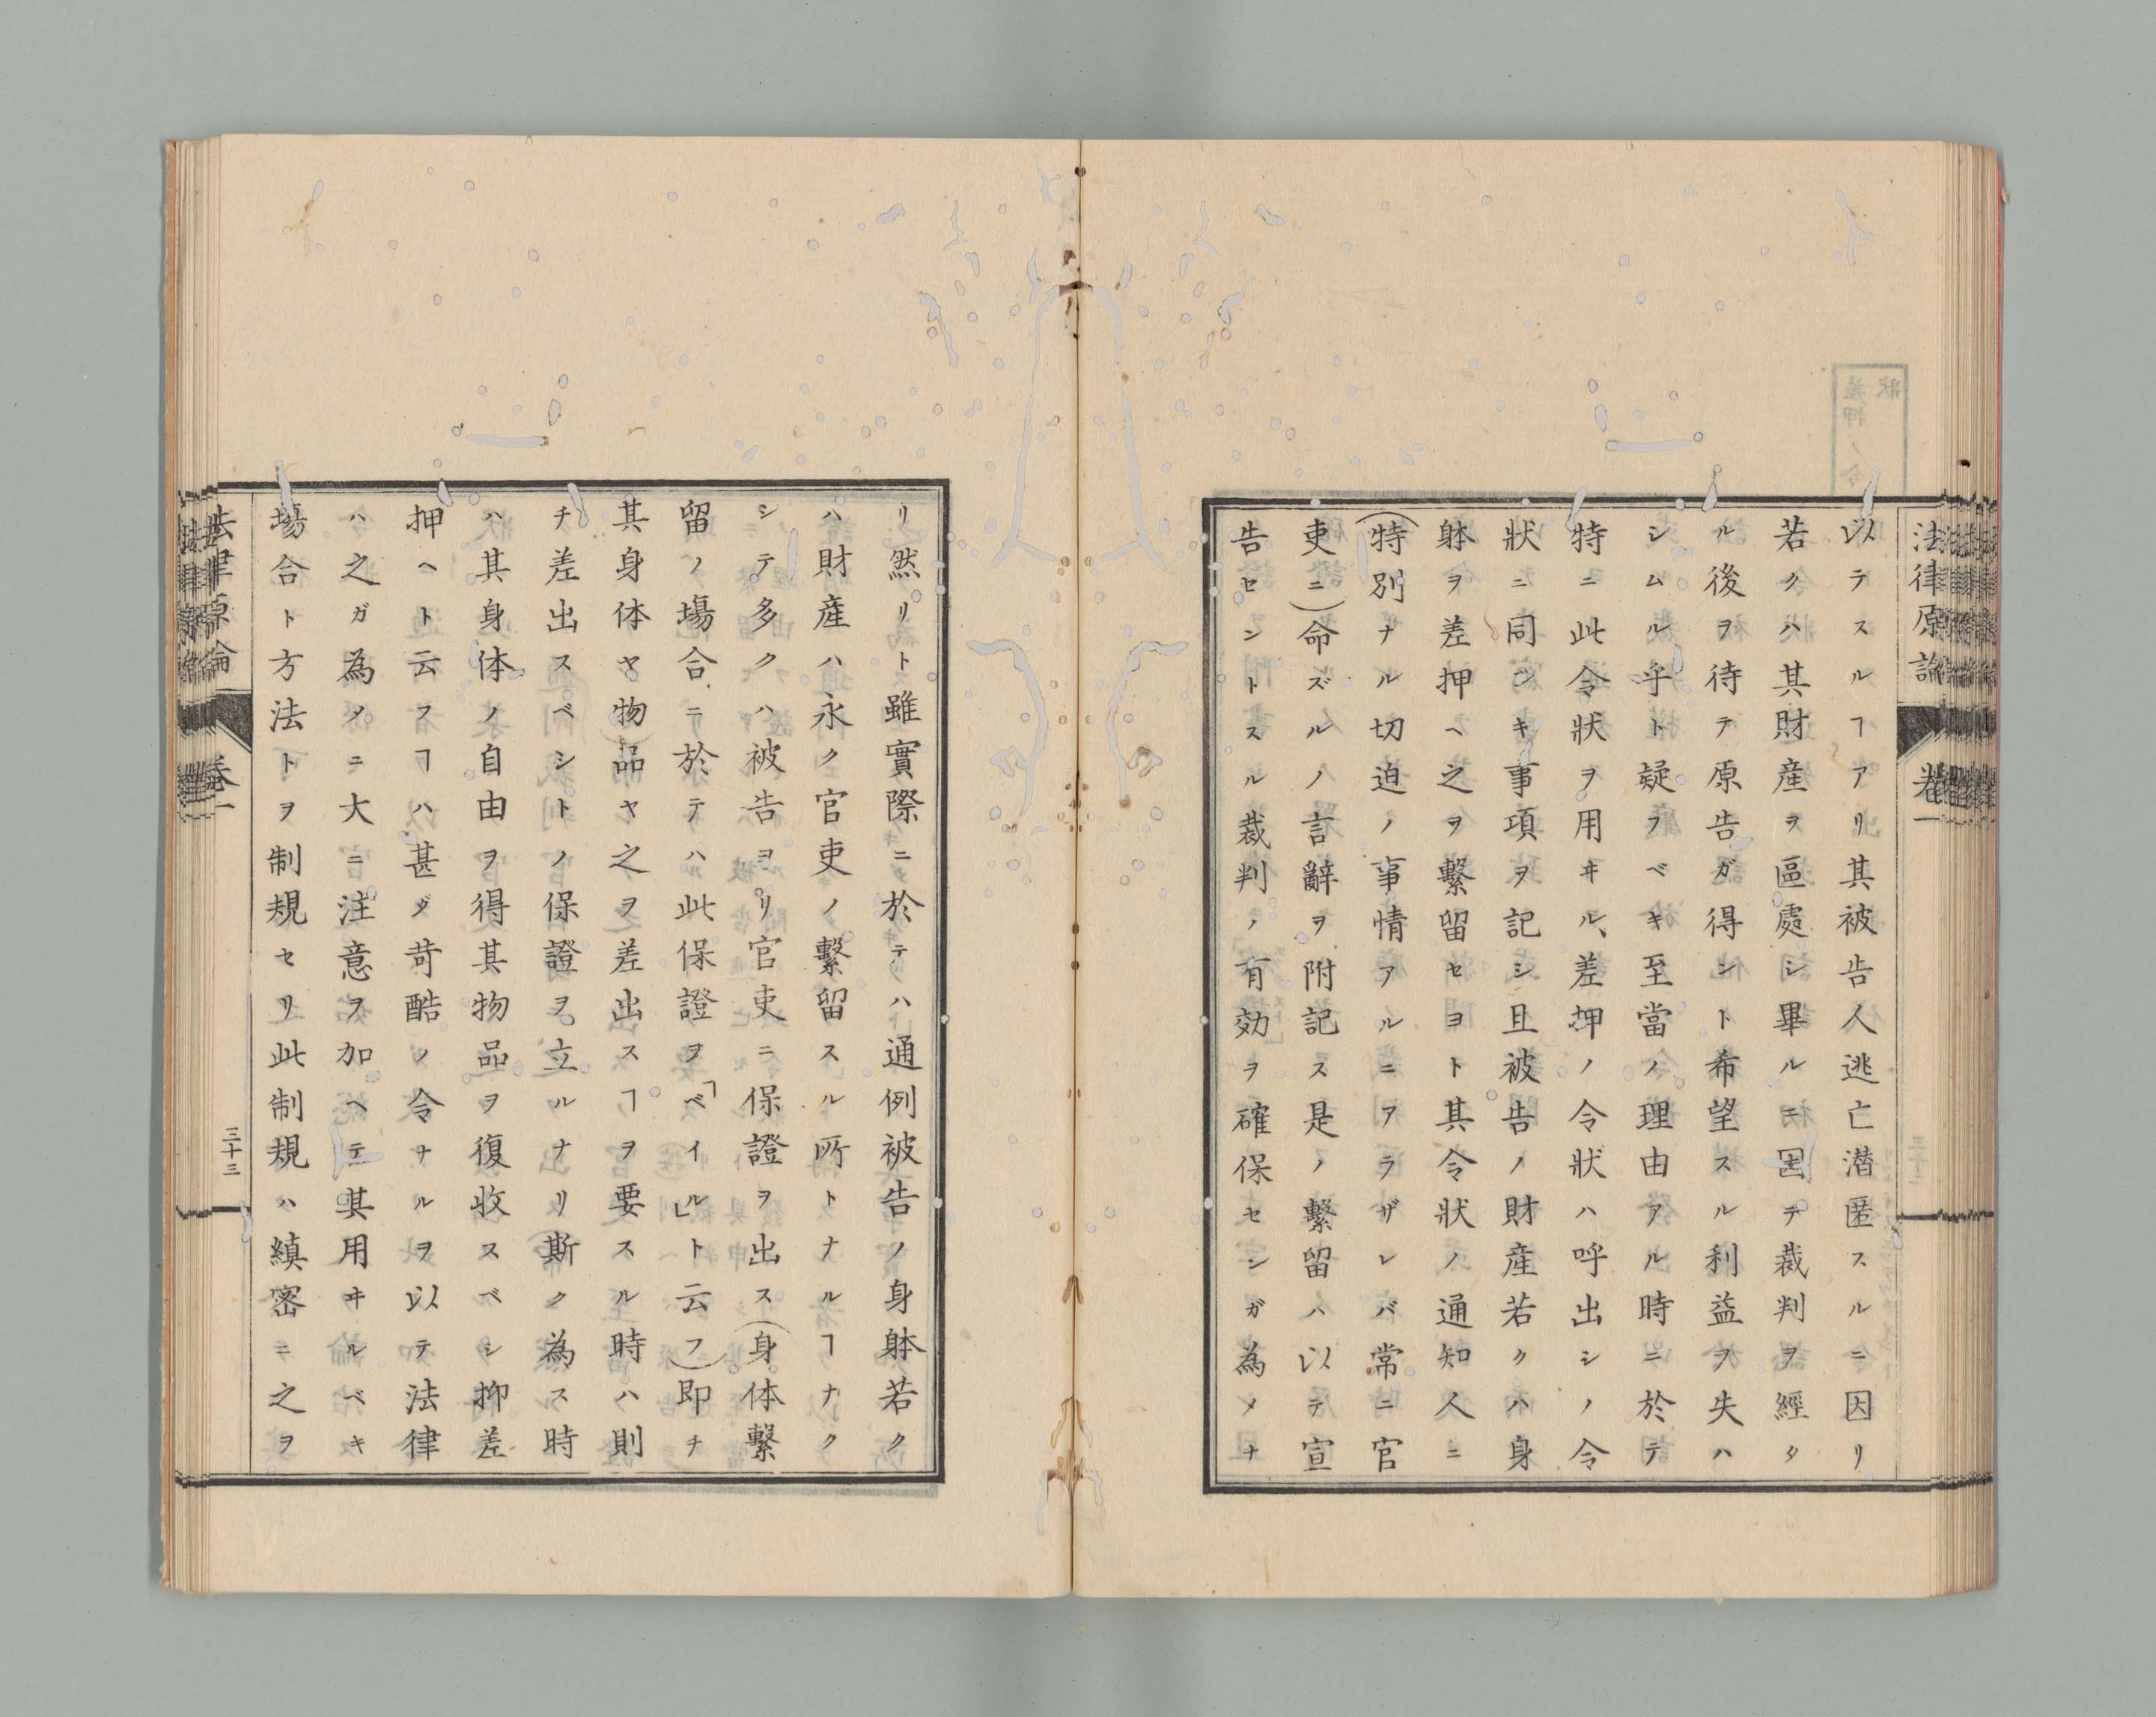 法律原論 卷一
以テスルヿアリ其被告人逃亡潜匿スルニ因リ
若クハ其財産ヲ區處シ畢ルニ因テ裁判ヲ經タ
ル後ヲ待テ原告ガ得ント希望スル利益ヲ失ハ
シムル乎ト疑フベキ至當ノ理由アル時ニ於テ
特ニ此令狀ヲ用ヰル、差押ノ令狀ハ呼出シノ令
狀ニ同シキ事項ヲ記シ且被告ノ財産若クハ身
躰ヲ差押ヘ之ヲ繫留セヨト其令狀ノ通知人ニ
(特別ナル切迫ノ事情アルニアラザレバ常ニ官
吏ニ)命ズルノ言辭ヲ附記ス是ノ繫留ハ以テ宣
告セントスル裁判ノ有効ヲ確保センガ為メナ
リ然リト雖實際ニ於テハ通例被告ノ身躰若ク
ハ財産ハ永ク官吏ノ繫留スル所トナルヿナク
シテ多クハ被告ヨリ官吏ニ保證ヲ出ス(身体繫
留ノ塲合ニ於テハ此保證ヲ「ベイル」ト云フ)即チ
其身体ヤ物品ヤ之ヲ差出スヿヲ要スル時ハ則
チ差出スベシトノ保證ヲ立ルナリ斯ク為ス時
ハ其身体ノ自由ヲ得其物品ヲ復收スベシ抑差
押ヘト云フヿハ甚ダ苛酷ノ令ナルヲ以テ法律
ハ之ガ為メニ大ニ注意ヲ加ヘテ其用ヰルベキ
塲合ト方法トヲ制規セリ此制規ハ縝密ニ之ヲ
法律原論 卷一 三十三